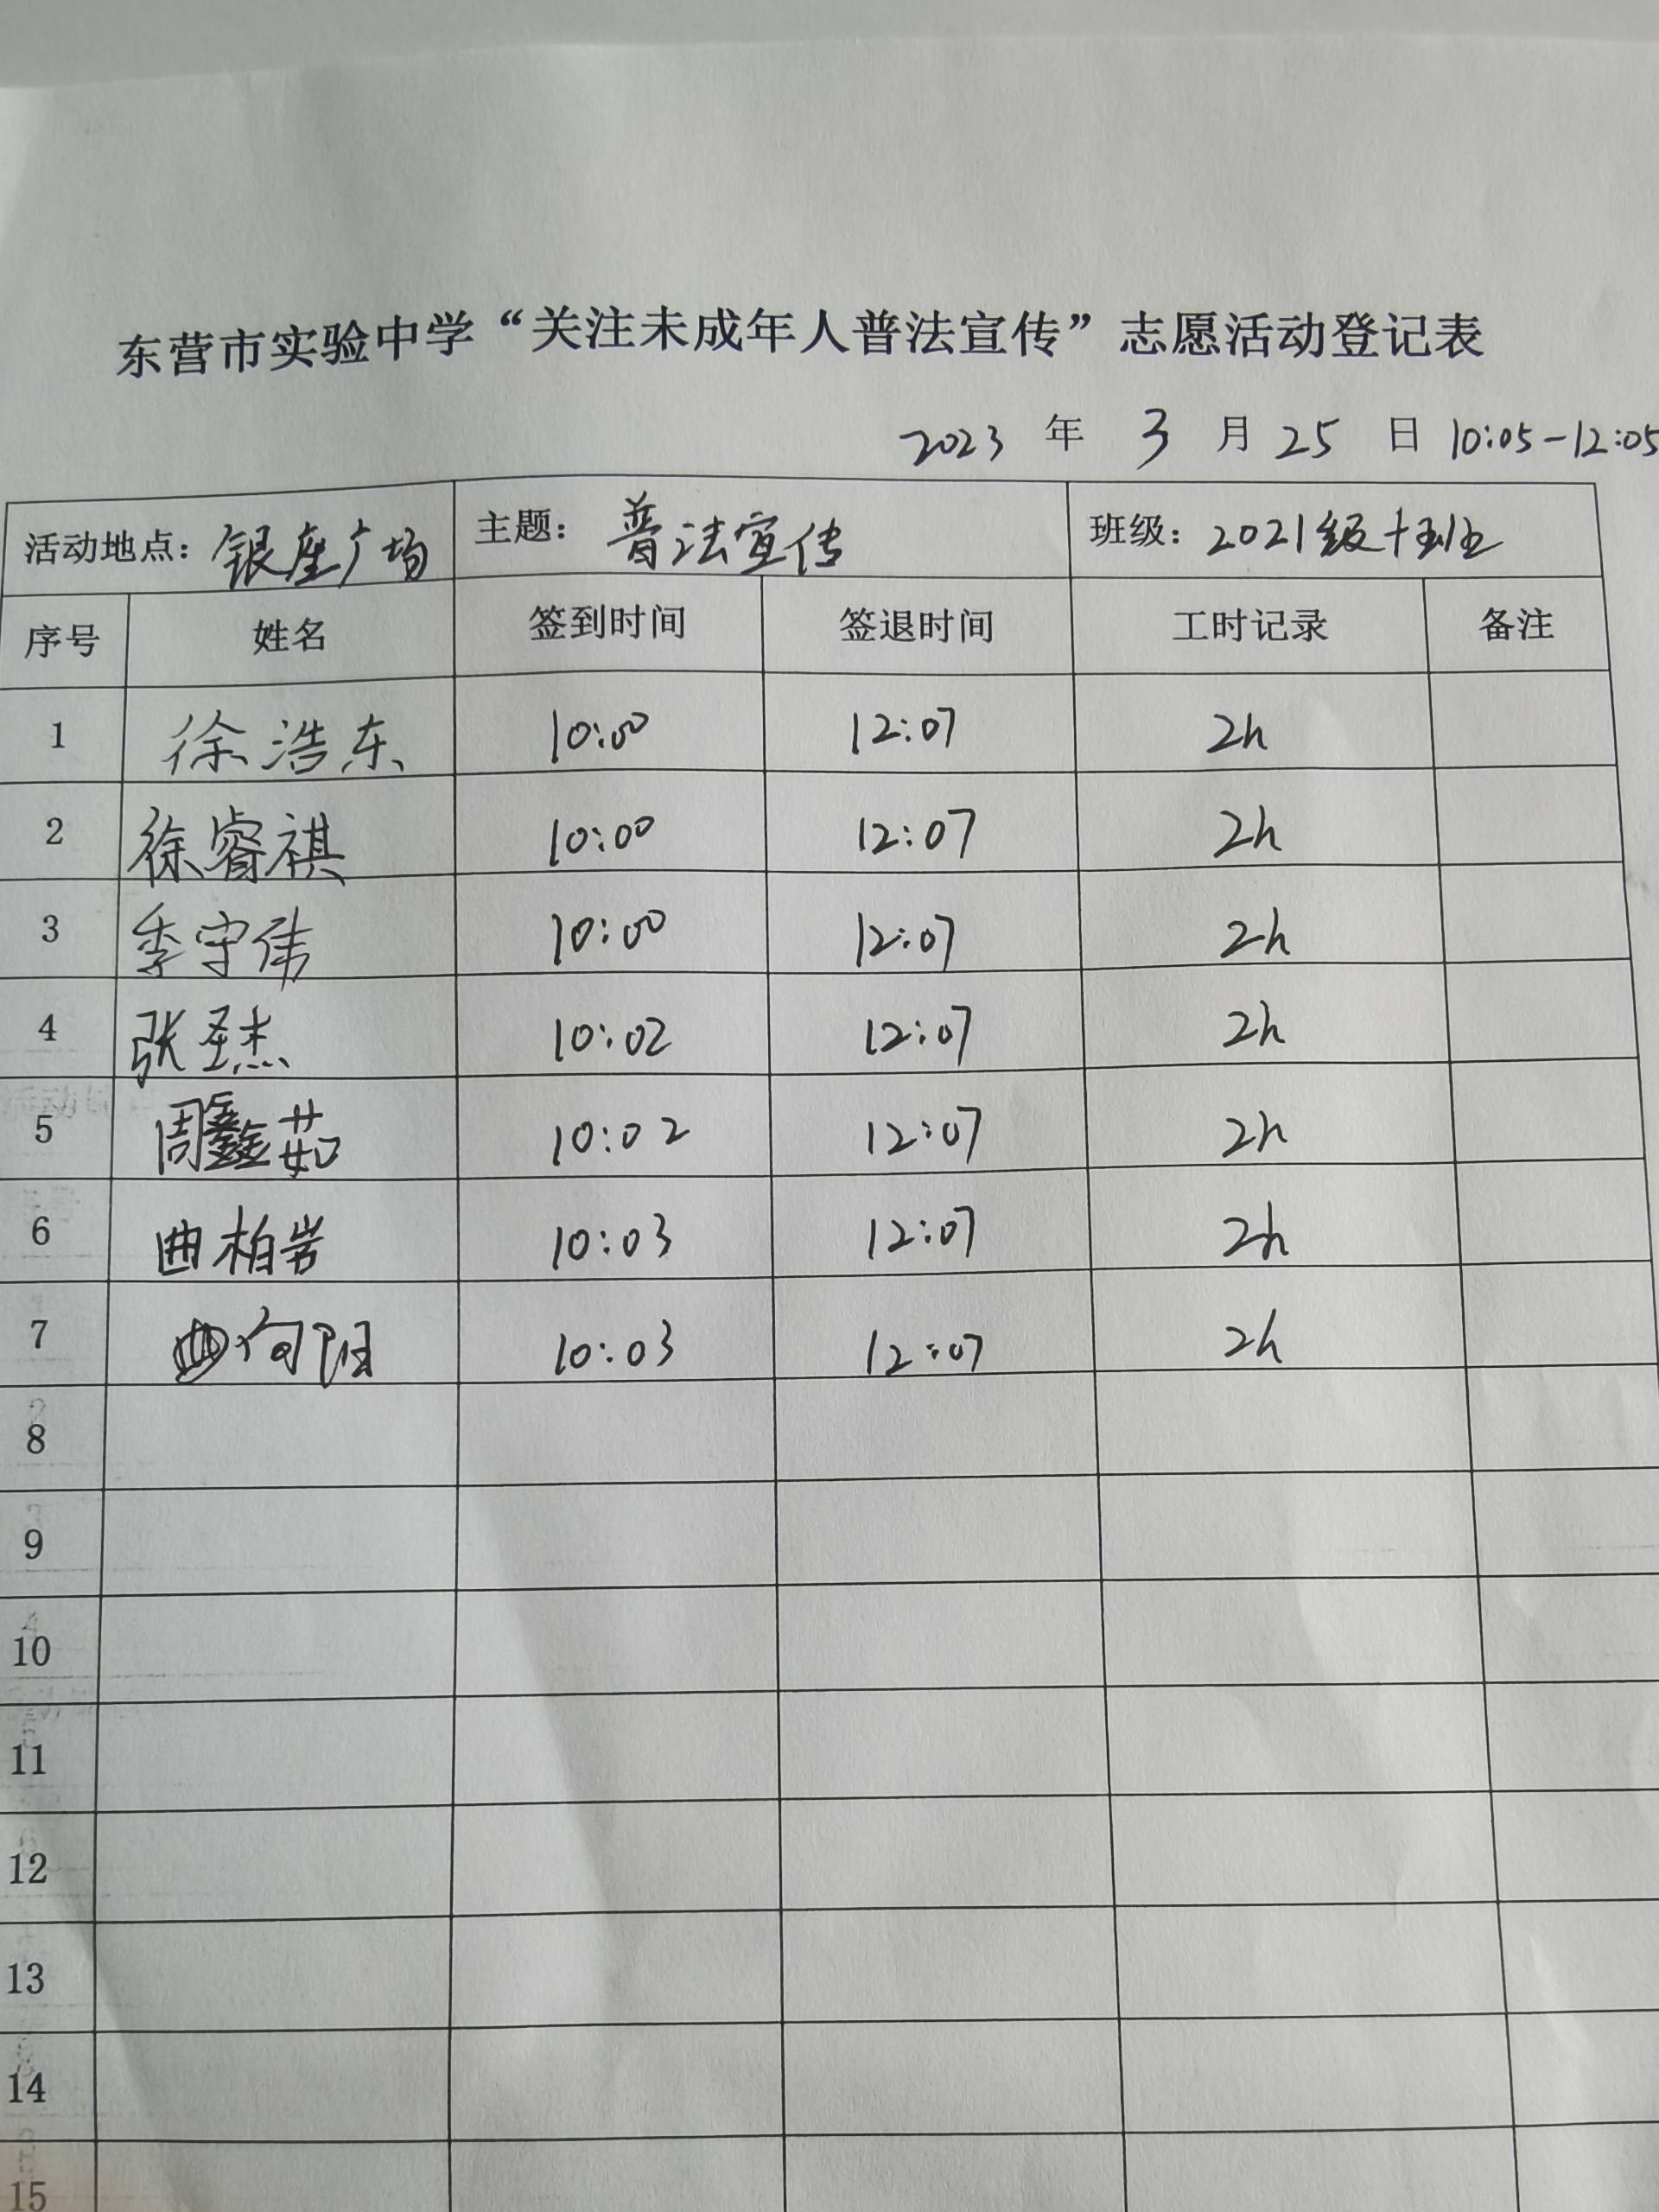 东营市实验中学“关注未成年人普法宣传”志愿活动登记表
2023 年 3 月 25 日 10:05-12:05
活动地点: 银座广场 主题: 普法宣传 班级: 2021级十班
序号 姓名 签到时间 签退时间 工时记录 备注
1 徐浩东 10:00 12:07 2h
2 徐睿祺 10:00 12:07 2h
3 季守伟 10:00 12:07 2h
4 张圣杰 10:02 12:07 2h
5 周鑫茹 10:02 12:07 2h
6 曲柏岩 10:03 12:07 2h
7 曲向阳 10:03 12:07 2h
8
9
10
11
12
13
14
15